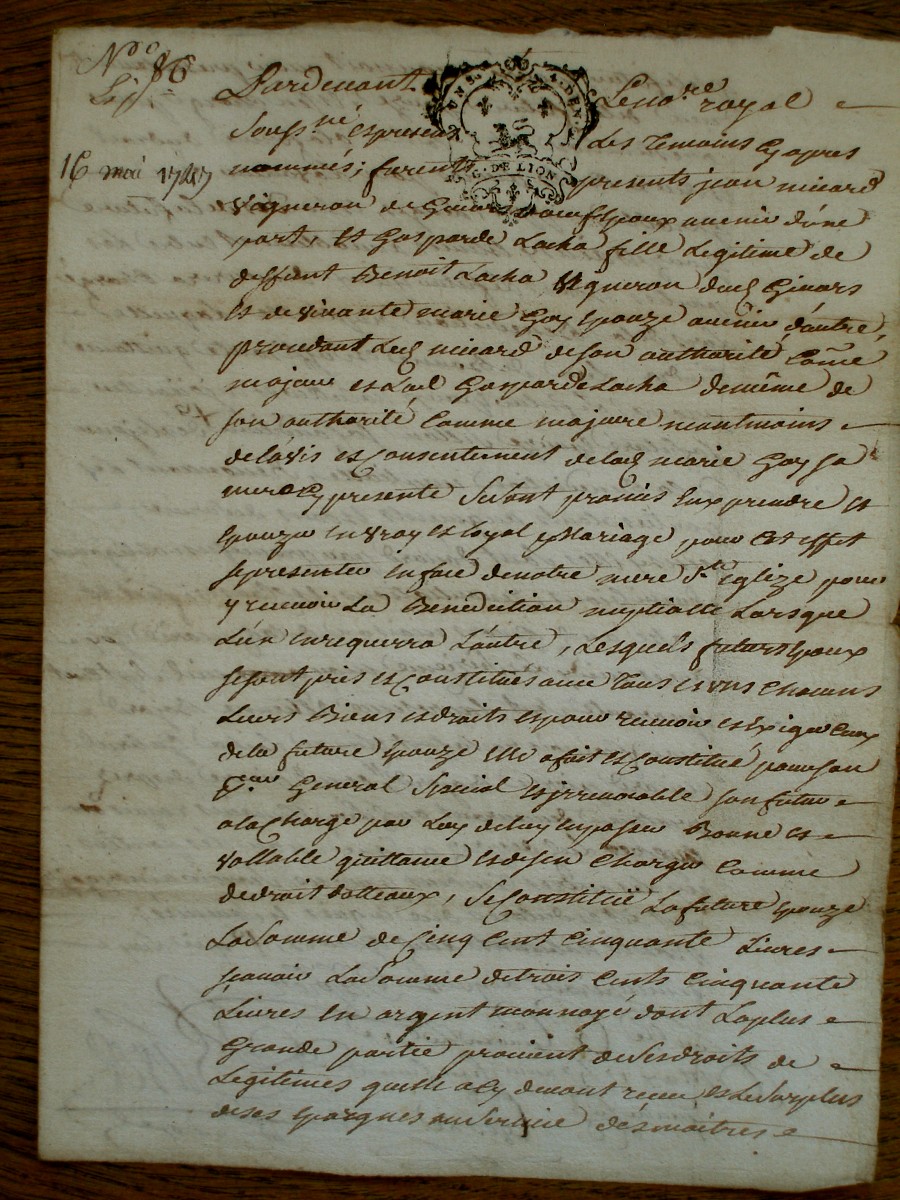 N° 86
16 mai 1747
UN S. 4. DEN.
G. DE LION
Pardevant Le no.re royal
souss.né es presens Les Temoins Cyapres
nommés; furent presents jean micard
vigneron de Givors Epoux avenir d'úne
part, et Gasparde Lacha fille Legitime de
deffunt Benoit Lacha vigneron dud Givors
et de vivante marie Goy epouze avenir d'autre,
procedant Led micard de son authorité Cõme
majeur et Lad Gasparde Lacha demême de
son authorité Comme majeure neantmoins
de l'avis et Consentement de lad marie Goy sa
mere Cy presente se sont promis Eux prendre et
Epouzer en vray et loyal Mariage pour Cet effet
se presenter en face de notre mere S.te Eglize pour
y recevoir La Benediction nuptialle Lorsque
L'ún en requerra L'autre, Lesquels futurs Epoux
se sont pris et Constitués avec Tous et uns Chacuns
Leurs Biens et droits et pour recevoir et Exiger Ceux
de la future Epouze Elle a fait et Constitué pour son
General Special et irrevocable son futur
a la Charge par Luy de luy en passer Bonne et
vallable quittance et de s'en Charger Comme
de droit dotteaux, Se Constitüe La future Epouze
La Somme de Cinq Cent Cinquante Livres
scavoir La Somme de trois Cents Cinquante
Livres en argent monnoyé dont La plus
Grande partie provient de Ses droits de
Legitimes quelle a Cy devant receu et Le Surplus
de ses Epargnes au Service des maitres